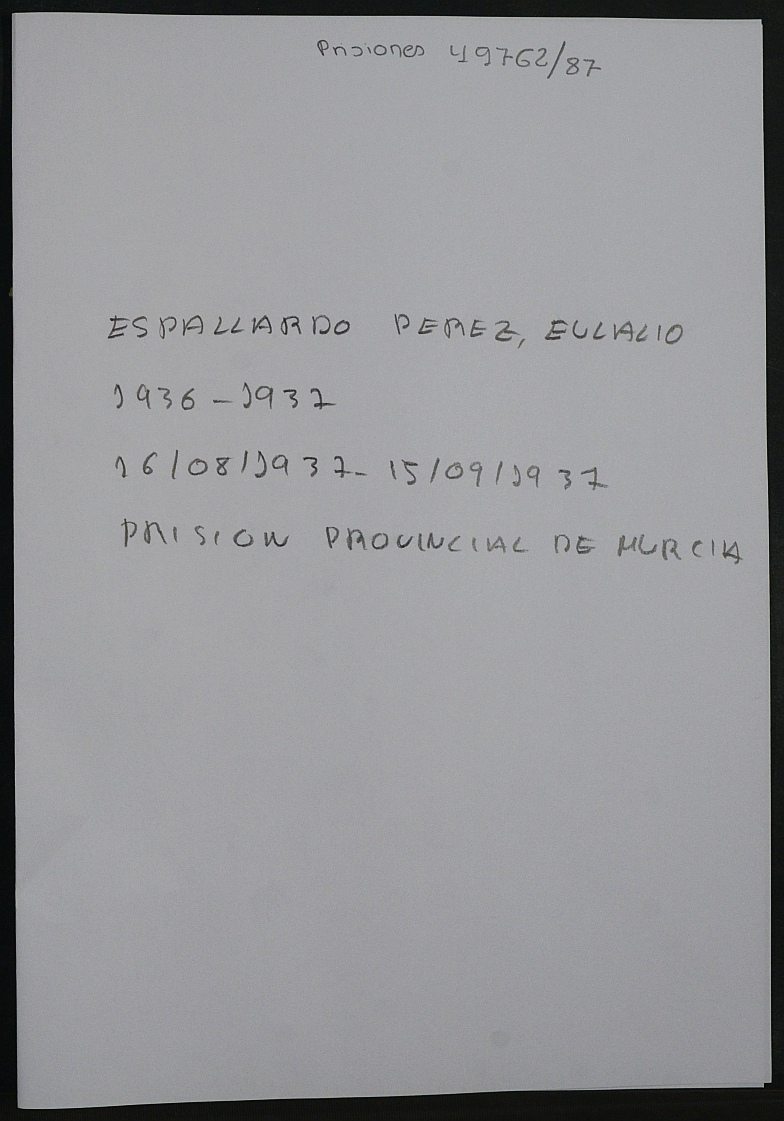 Prisiones 49762/87
ESPALLARDO PEREZ, EULALIO
1936-1937
16/08/1937-15/09/1937
PRISION PROVINCIAL DE MURCIA